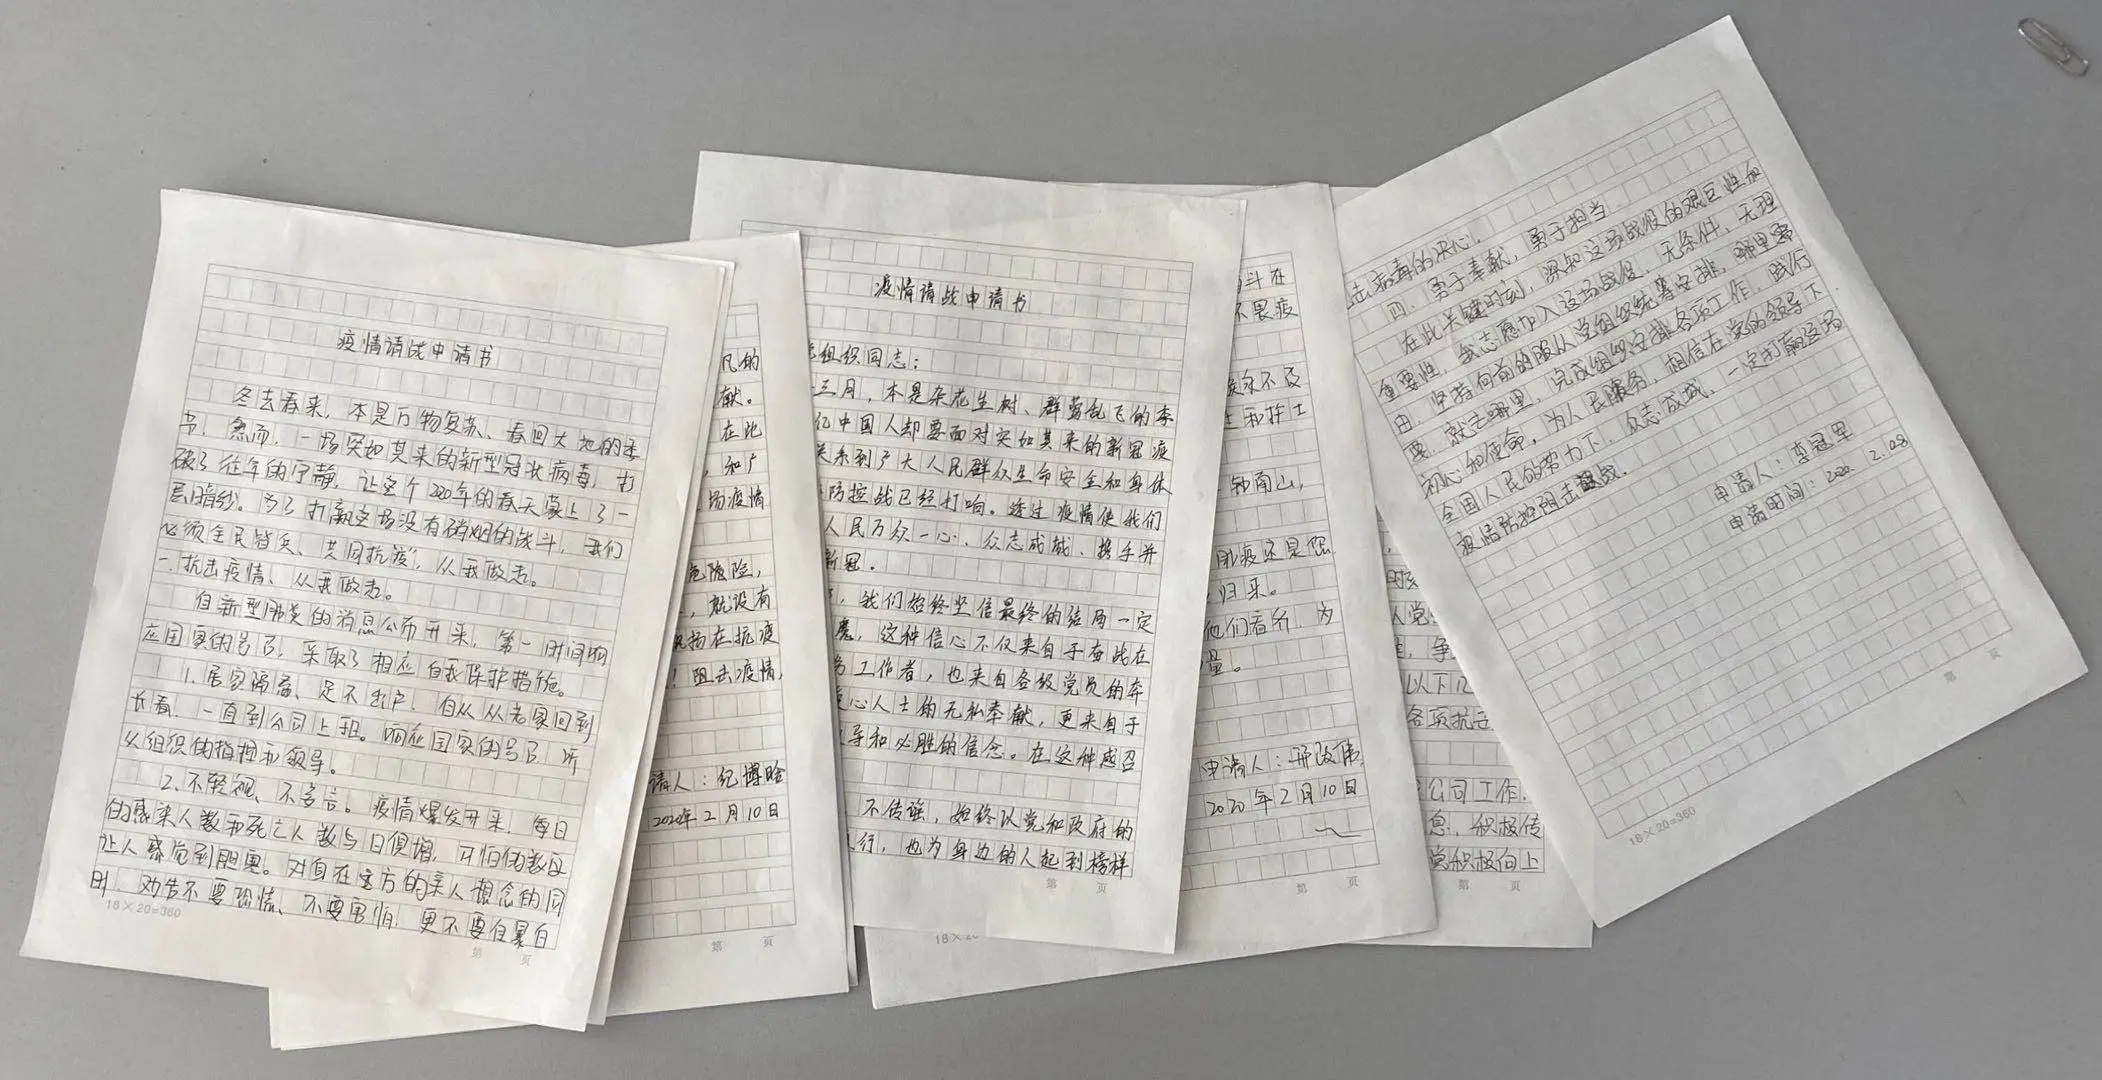 疫情请战申请书
冬去春来，本是万物复苏、春回大地的季
节，然而，一场突如其来的新型冠状病毒，打
破了往年的宁静，让整个2020年的春天蒙上了一
层暗纱。为了打赢这场没有硝烟的战斗，我们
必须全民皆兵、共同抗疫，从我做起。
一.抗击疫情、从我做起。
自新型肺炎的消息公布开来，第一时间响
应国家的号召，采取了相应自我保护措施。
1.居家隔离、足不出户，自从从老家回到
长春，一直到公司上班。响应国家的号召，听
从组织的指挥和领导。
2.不轻视、不多言。疫情爆发开来，每日
的感染人数和死亡人数与日俱增，可怕的数字
让人感觉到胆寒。对自在远方的亲人想念的同
时，劝告不要恐慌、不要害怕，更不要自暴自
18×20=360
第 页
凡的
献。
在此
，和广
场疫情
危险，
，就没有
扬在抗疫
！阻击疫情，
请人：纪博晗
2020年2月10日
第 页
疫情请战申请书
组织同志：
三月，本是杂花生树、群莺乱飞的季
亿中国人却要面对突如其来的新冠疫
关系到广大人民群众生命安全和身体
防控战已经打响。透过疫情使我们
人民万众一心、众志成城、携手并
新冠。
，我们始终坚信最终的结局一定
魔，这种信心不仅来自于奋战在
务工作者，也来自各级党员的奔
爱心人士的无私奉献，更来自于
导和必胜的信念。在这种感召
不传谣，始终以党和政府的
行，也为身边的人起到榜样
第 页
斗在
不畏疫
永不及
士和护士
钟南山，
肺疫还是
归来。
他们看齐，为
量。
申请人：邢改伟
2020年2月10日
第 页
18×20
时刻
人党
，争
以下几
各项抗击
公司工作，
息，积极传
党积极向上
第 页
击病毒的决心。
四、勇于奉献，勇于担当
在此关键时刻，深知这场战役的艰巨性和
重要性，我志愿加入这场战役，无条件、无理
由、坚持向前的服从党组织统筹安排，哪里需
要，就去哪里，完成组织安排各项工作，践行
初心和使命，为人民服务，相信在党的领导下
全国人民的努力下，众志成城，一定打赢这场
疫情防控阻击战。
申请人：李冠军
申请时间：2020.2.08
第 页
18×20=360